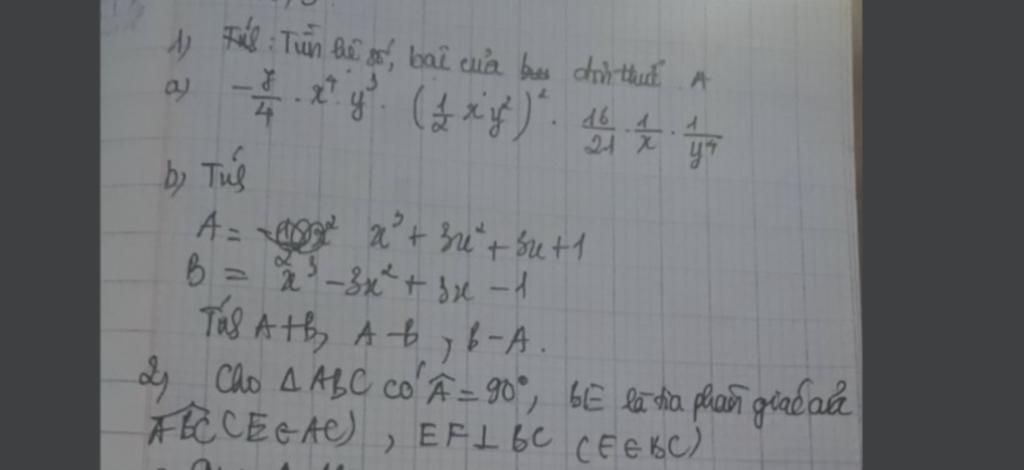 1) Tính: Tìm hệ số, bậc của đơn thức A
a) -7/4 . x⁴ y³ . (1/2 x y²)² . 16/21 . 1/x . 1/y⁴
b) Tính
A = x³ + 3x² + 3x + 1
B = x³ - 3x² + 3x - 1
Tính A+B, A-B, B-A.
2) Cho △ABC có Â = 90°, BE là tia phân giác của
ABC (E ∈ AC), EF ⊥ BC (E ∈ BC)